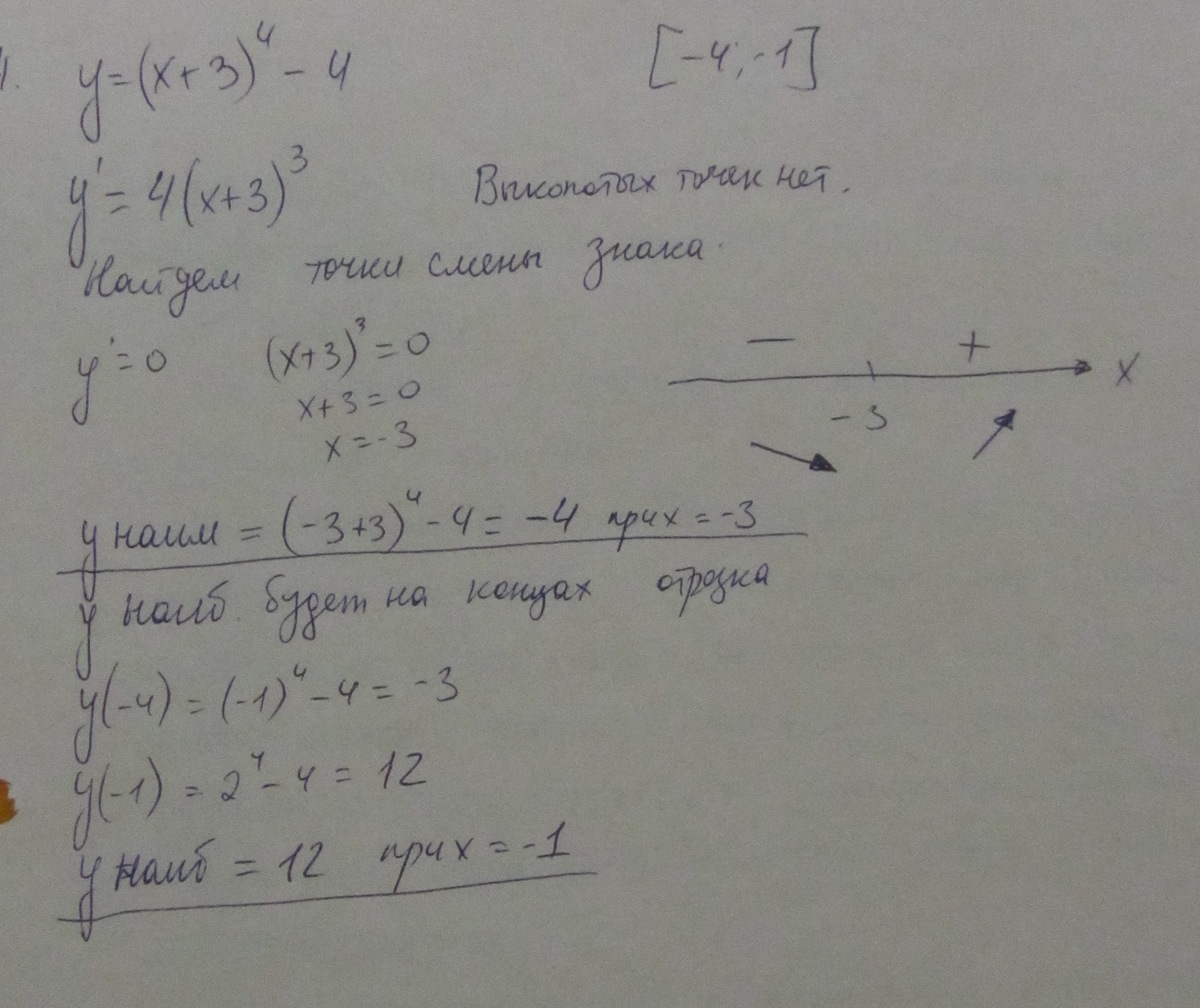 y=(x+3)⁴-4 [-4;-1]
y'=4(x+3)³ Выколотых точек нет.
Найдем точки смены знака.
y'=0 (x+3)³=0
x+3=0
x=-3
— + x
-3
y наим = (-3+3)⁴-4=-4 при x=-3
y наиб. будет на концах отрезка
y(-4)=(-1)⁴-4=-3
y(-1)=2⁴-4=12
y наиб = 12 при x=-1